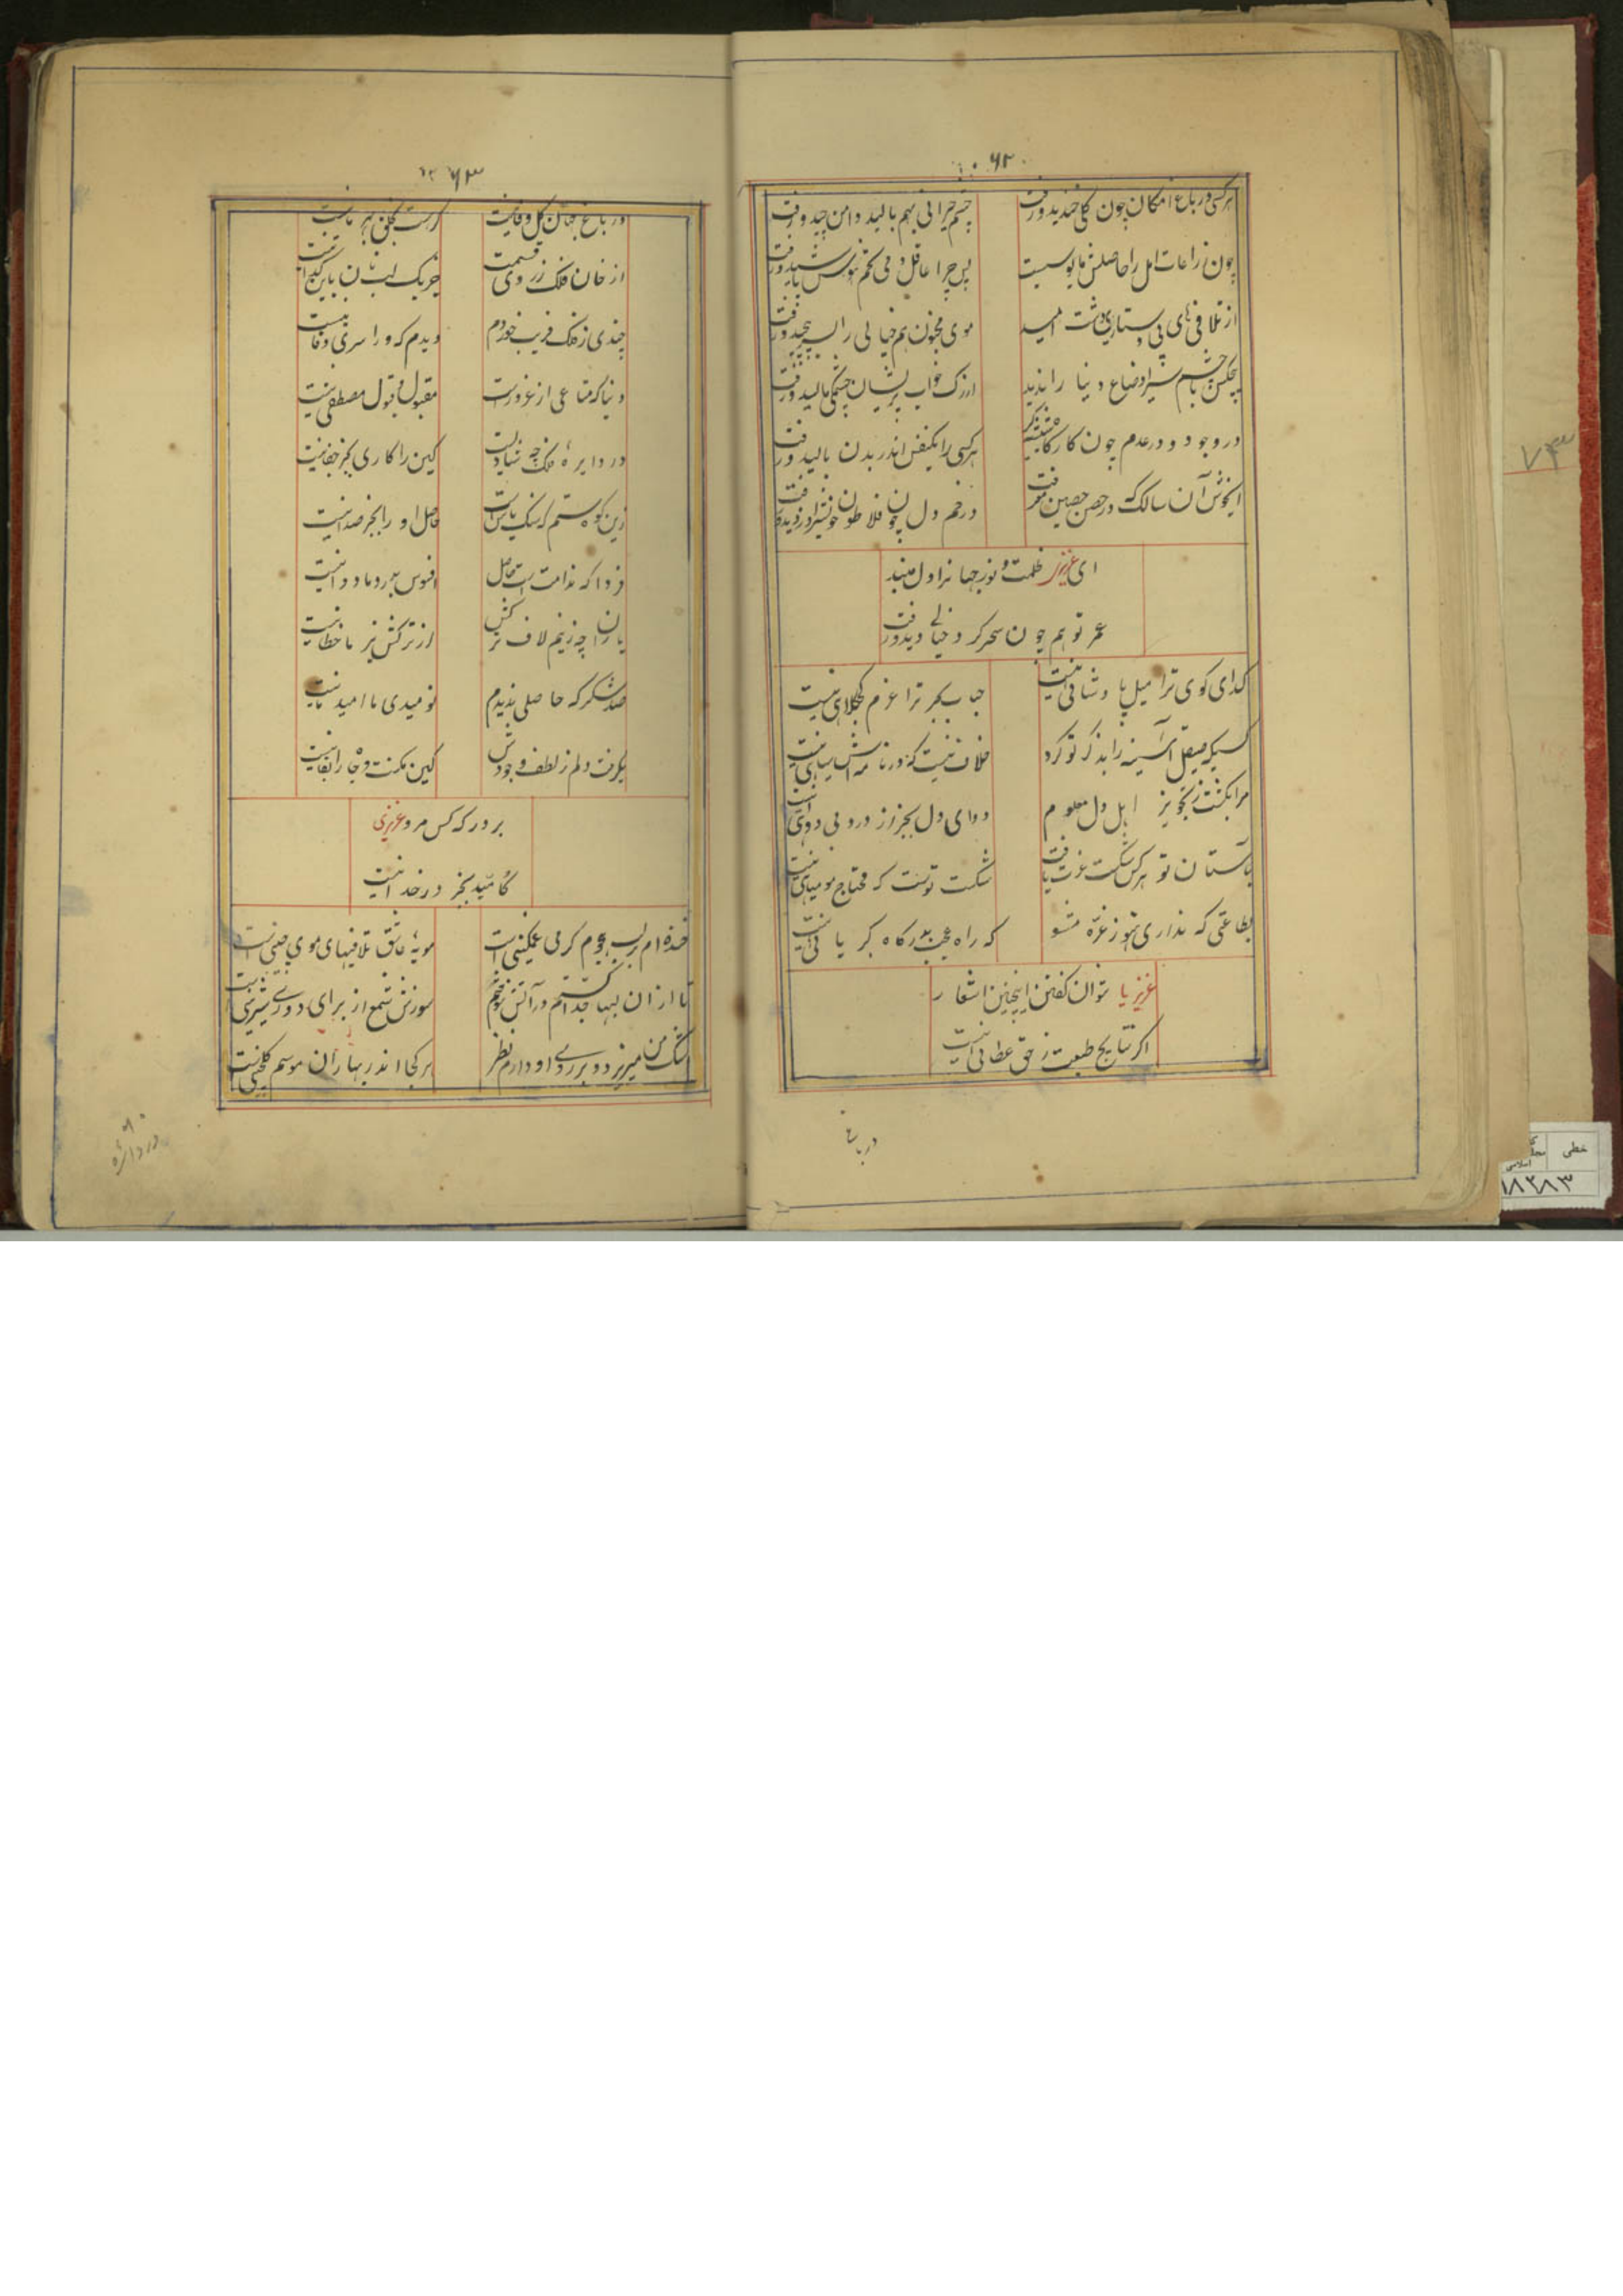 ۶۲
هر کسی در باغ امکان چون گلی خندید و رفت
چشم حیرانی بهم مالید و دامن چید و رفت
چون زراعات امل را حاصلش مایوسیست
پس چرا عاقل دمی تخم هوس پاشید و رفت
از تلافی های بی دستار دشت امید
موی مجنون هم خیالی را بسر پیچید و رفت
هیچکس با چشم سیر اوضاع دنیا را ندید
از رگ خواب پریشان چشمکی مالید و رفت
در وجود و در عدم چون کار
هر کسی را یکنفس اندر بدن بالید و رفت
ایخوش آن سالک که در حصن حصین معرفت
در خم دل چون فلاطون خویش را دزدیده رفت
ای عزیز ظلمت و نور جهانرا دل مبند
عمر تو هم چون سحر گرد خیالی دید و رفت
گدای کوی ترا میل پادشائی نیست
حباب بحر ترا عزم کجکلاهی نیست
کسیکه صیقل آئینه را بذکر تو کرد
خلاف نیست که در نامه اش سیاهی نیست
مرا بگشت ز تجویز اهل دل معلوم
دوای دل بجز از درد بی دوائی نیست
بآستان تو هر کس شکست عزت یافت
شکست تو است که محتاج مومیائی نیست
بطاعتی که نداری هنوز غره مشو
که راه عجب بدرگاه کبریائی نیست
عزیز یا نتوان گفتن اینچنین اشعار
اگر نتایج طبعت ز حق عطائی نیست
در باغ
۶۳
در باغ جهان گل وفا نیست
گر هست گلی بهر ما نیست
از خان فلک ز روی قسمت
جز یک لب نان باین گدا نیست
چندی ز فلک فریب خوردم
دیدم که ورا سری وفا نیست
دنیا که متاعی از غرور است
مقبول قبول مصطفی نیست
در دایره فلک چه بنیاد است
کین را کاری بجز جفا نیست
زین کوه ستم که سنگ یأس است
حاصل او را بجز صدا نیست
فردا که ندامت است حاصل
افسوس بدرد ما دوا نیست
یاران چه زنیم لاف ترکش
از ترکش تیر ما خطا نیست
صد شکر که حاصلی ندیدم
نومیدی ما امید ما نیست
بگرفت دلم ز لطف وجودش
کین مکنت و جاه را بقا نیست
بر درگه کس مرو عزیزی
کامید بجز در خدا نیست
خنده ام بر لب هجوم گرمی غمگینی است
مویه عاشق تلافیهای موی چینی است
تا از ان لبها جدا گشتم در آتش سوختم
سوزش شمع از برای دوری شیرینی است
اشک من میریزد و بر روی او دارم نظر
هر کجا اندر بهاران موسم گلچینی است
در دائره
۷۳
خطی
۱۸۲۸۳